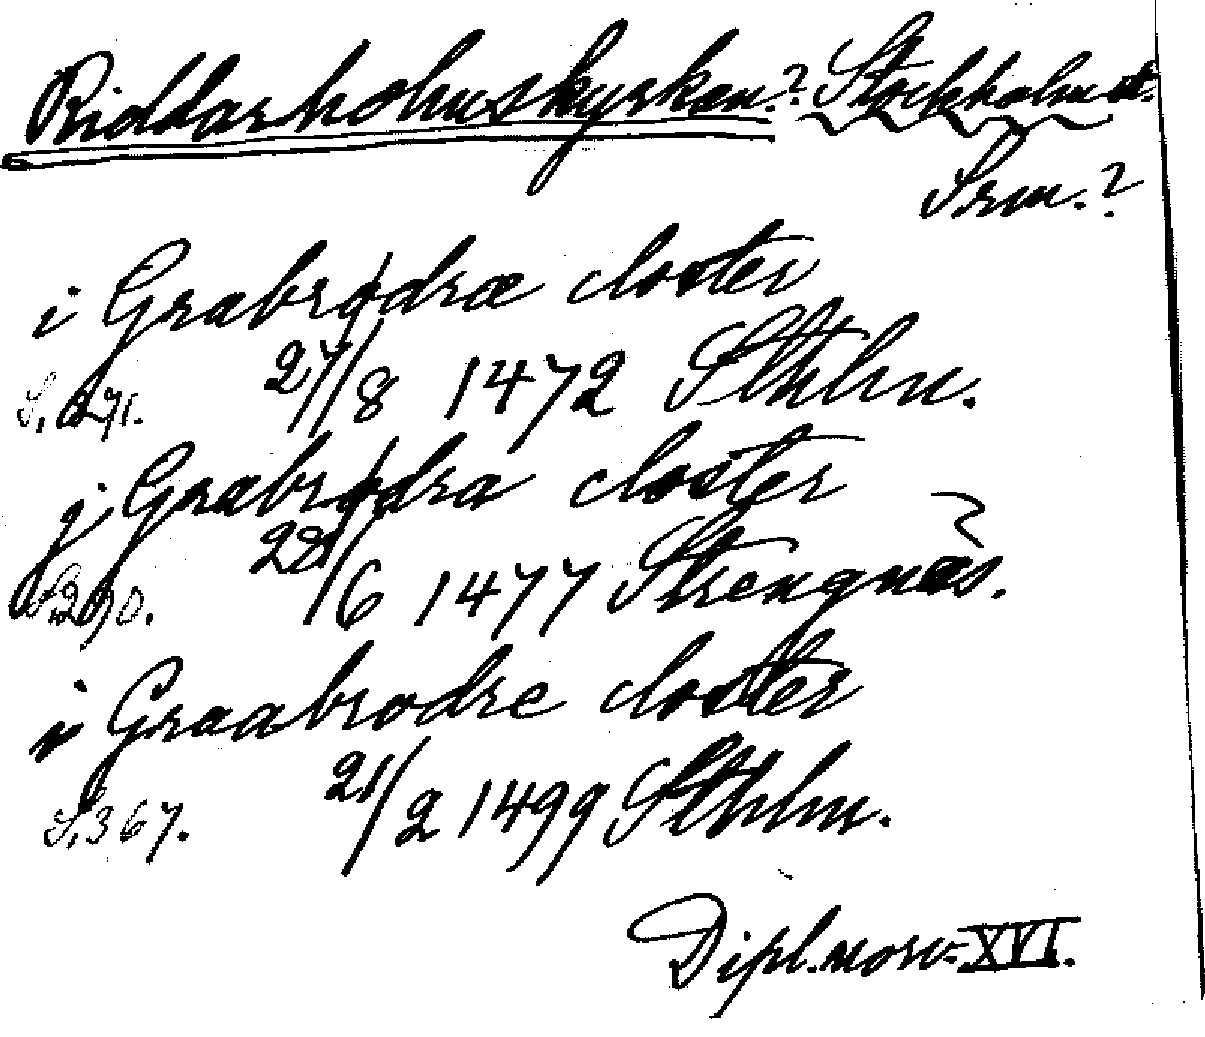 Riddarholmskyrkan.? Stockholm st.
Srm.?
i Grabrødræ closter
27/8 1472 Sthlm.
S. 271.
j Grabrødra closter
28/6 1477 Strengnæs.
S. 290.
i Graabrodre closter
21/2 1499 Sthlm.
S. 367.
Dipl. norv. XVI.